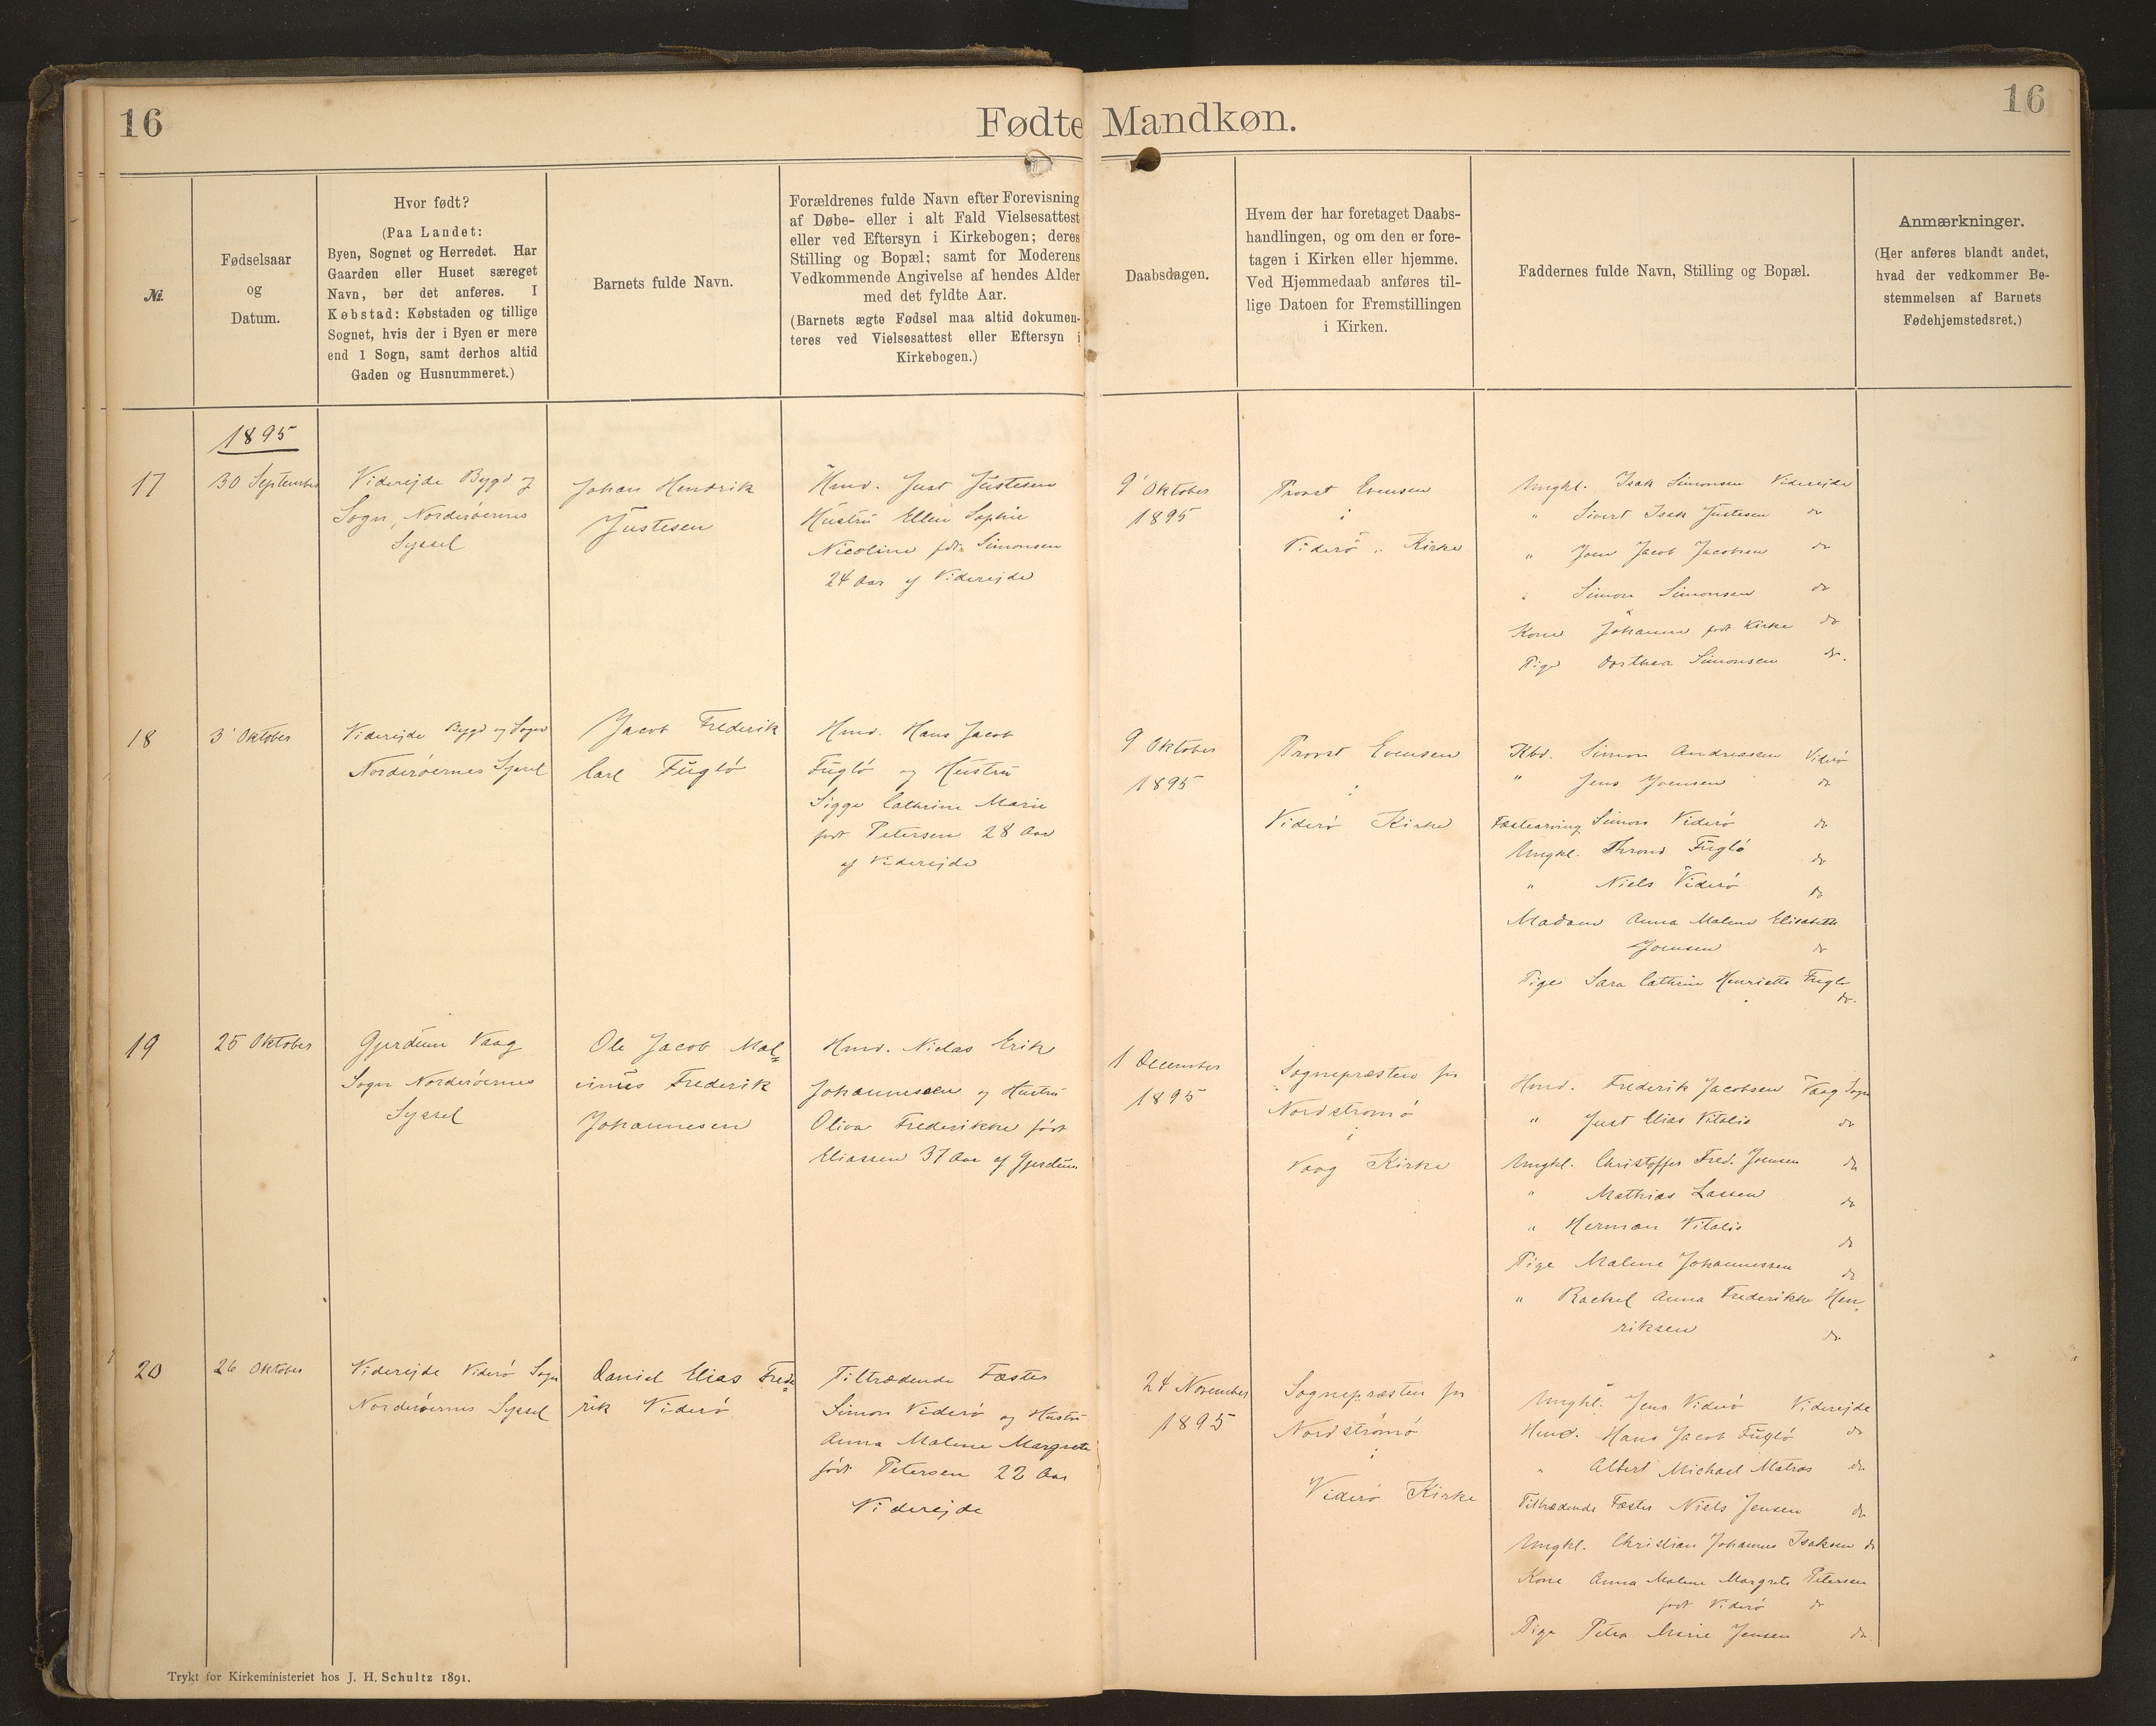 16
Fødte Mandkøn.
16
№.
Fødselsaar
og
Datum.
Hvor født?
(Paa Landet:
Byen, Sognet og Herredet. Har
Gaarden eller Huset særeget
Navn, bør det anføres. I
Købstad: Købstaden og tillige
Sognet, hvis der i Byen er mere
end 1 Sogn, samt derhos altid
Gaden og Husnummeret.)
Barnets fulde Navn.
Forældrenes fulde Navn efter Forevisning
af Døbe- eller i alt Fald Vielsesattest
eller ved Eftersyn i Kirkebogen; deres
Stilling og Bopæl; samt for Moderens
Vedkommende Angivelse af hendes Alder
med det fyldte Aar.
(Barnets ægte Fødsel maa altid dokumen-
teres ved Vielsesattest eller Eftersyn i
Kirkebogen.)
Daabsdagen.
Hvem der har foretaget Daabs-
handlingen, og om den er fore-
tagen i Kirken eller hjemme.
Ved Hjemmedaab anføres til-
lige Datoen for Fremstillingen
i Kirken.
Faddernes fulde Navn, Stilling og Bopæl.
Anmærkninger.
(Her anføres blandt andet,
hvad der vedkommer Be-
stemmelsen af Barnets
Fødehjemstedsret.)
1895
17
30 September
Viderejde Bygd og
Sogn, Norderöernes
Syssel
Johan Hendrik
Justesen
Hmd. Just Justesen
Hustru Ellen Sophie
Nicoline født Simonsen
24 Aar af Viderejde
9' Oktober
1895
Provst Evensen
i
Viderö Kirke
Ungkl. Isak Simonsen Viderejde
" Sivert Isak Justesen do
" Joen Jacob Jacobsen do
" Simon Simonsen do
Kone Johanne født Kirke do
Pige Dorthea Simonsen do.
18
3' Oktober
Viderejde Bygd og Sogn
Norderöernes Syssel
Jacob Frederik
Carl Fuglö
Hmd. Hans Jacob
Fuglö og Hustru
Sigge Cathrine Marie
født Petersen 28 Aar
af Viderejde
9 Oktober
1895
Provst Evensen
i
Viderö Kirke
Kbd. Simon Andreassen Viderö
" Jens Joensen do
Fæstearving Simon Viderö do
Ungkl. Thrond Fuglö do
" Niels Viderö do
Madam Anna Malene Elisabeth
Joensen do
Pige Sara Cathrine Henriette Fuglö
do.
19
25 Oktober
Gjerdum Vaag
Sogn Norderöernes
Syssel
Ole Jacob Mal=
vinus Frederik
Johannesen
Hmd. Niclas Erik
Johannesen og Hustru
Oliva Frederikke født
Eliassen 37 Aar af Gjerdum
1 December
1895
Sognepræsten for
Nordströmö
i
Vaag Kirke
Hmd. Frederik Jacobsen Vaag Sogn
" Just Elias Vitalis do
Ungkl. Christoffer Fred. Joensen do
" Mathias Lassen do
" Herman Vitalis
do
Pige Malene Johannessen do
" Rachel Anna Frederikke Hen=
riksen do
20
26 Oktober
Viderejde Viderö Sogn
Norderöernes Syssel
Daniel Elias Frede=
rik Viderö
Tiltrædende Fæster
Simon Viderö og Hustru
Anna Malene Margrete
født Petersen 22 Aar
Viderejde
24 November
1895
Sognepræsten for
Nordströmö
i
Viderö Kirke
Ungkl. Jens Viderö Viderejde
Hmd. Hans Jacob Fuglö do
" Albert Michael Matras do
Tiltrædende Fæster Niels Jensen do
Ungkl. Christian Johannes Isaksen do
Kone Anna Malene Margrete Petersen
født Viderö do
Pige Petra Marie Jensen do
Trykt for Kirkeministeriet hos J. H. Schultz 1891.